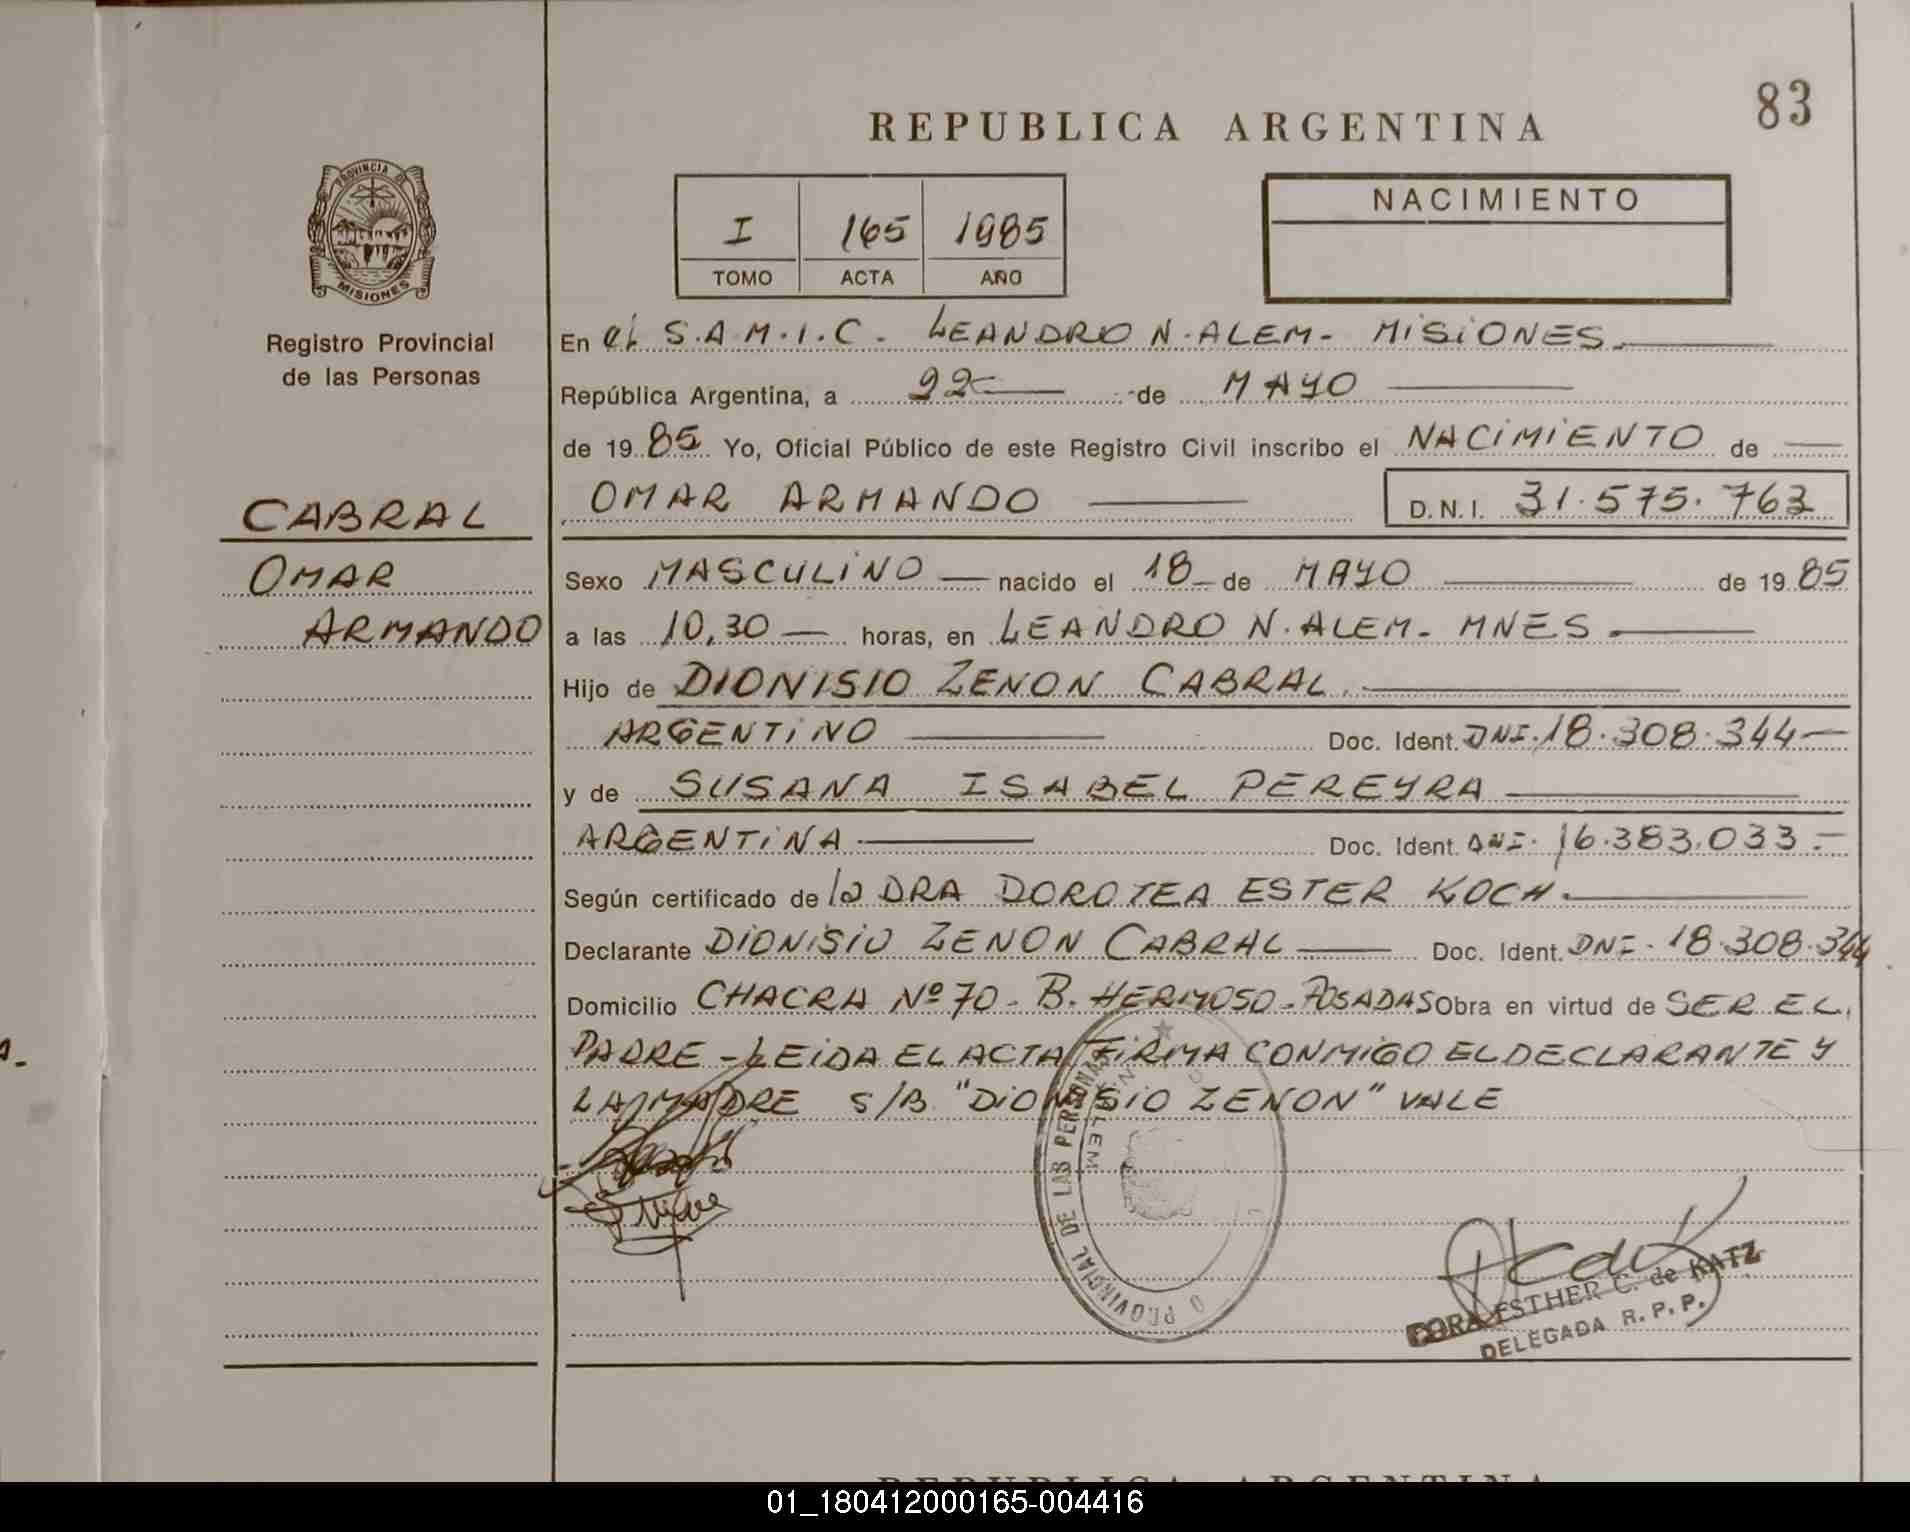 83
REPUBLICA ARGENTINA
PROVINCIA DE
MISIONES
Registro Provincial
de las Personas
I 165 1985
TOMO ACTA AÑO
NACIMIENTO
En el S.A.M.I.C. LEANDRO N. ALEM - MISIONES
República Argentina, a 22 de MAYO
de 1985 Yo, Oficial Público de este Registro Civil inscribo el NACIMIENTO de
OMAR ARMANDO D.N.I. 31.575.763
CABRAL
OMAR
ARMANDO
Sexo MASCULINO nacido el 18 de MAYO de 1985
a las 10,30 horas, en LEANDRO N. ALEM - MNES
Hijo de DIONISIO ZENON CABRAL
ARGENTINO Doc. Ident. DNI. 18.308.344
y de SUSANA ISABEL PEREYRA
ARGENTINA Doc. Ident. DNI. 16.383.033
Según certificado de la DRA DOROTEA ESTER KOCH
Declarante DIONISIO ZENON CABRAL Doc. Ident. DNI - 18.308.344
Domicilio CHACRA Nº 70 - B. HERMOSO - POSADAS Obra en virtud de SER EL
PADRE - LEIDA EL ACTA FIRMA CONMIGO EL DECLARANTE Y
LA MADRE S/B "DIONISIO ZENON" VALE
PROVINCIAL DE LAS PERSONAS
ALEM
DORA ESTHER C. de KATZ
DELEGADA R.P.P.
REPUBLICA ARGENTINA
01_180412000165-004416